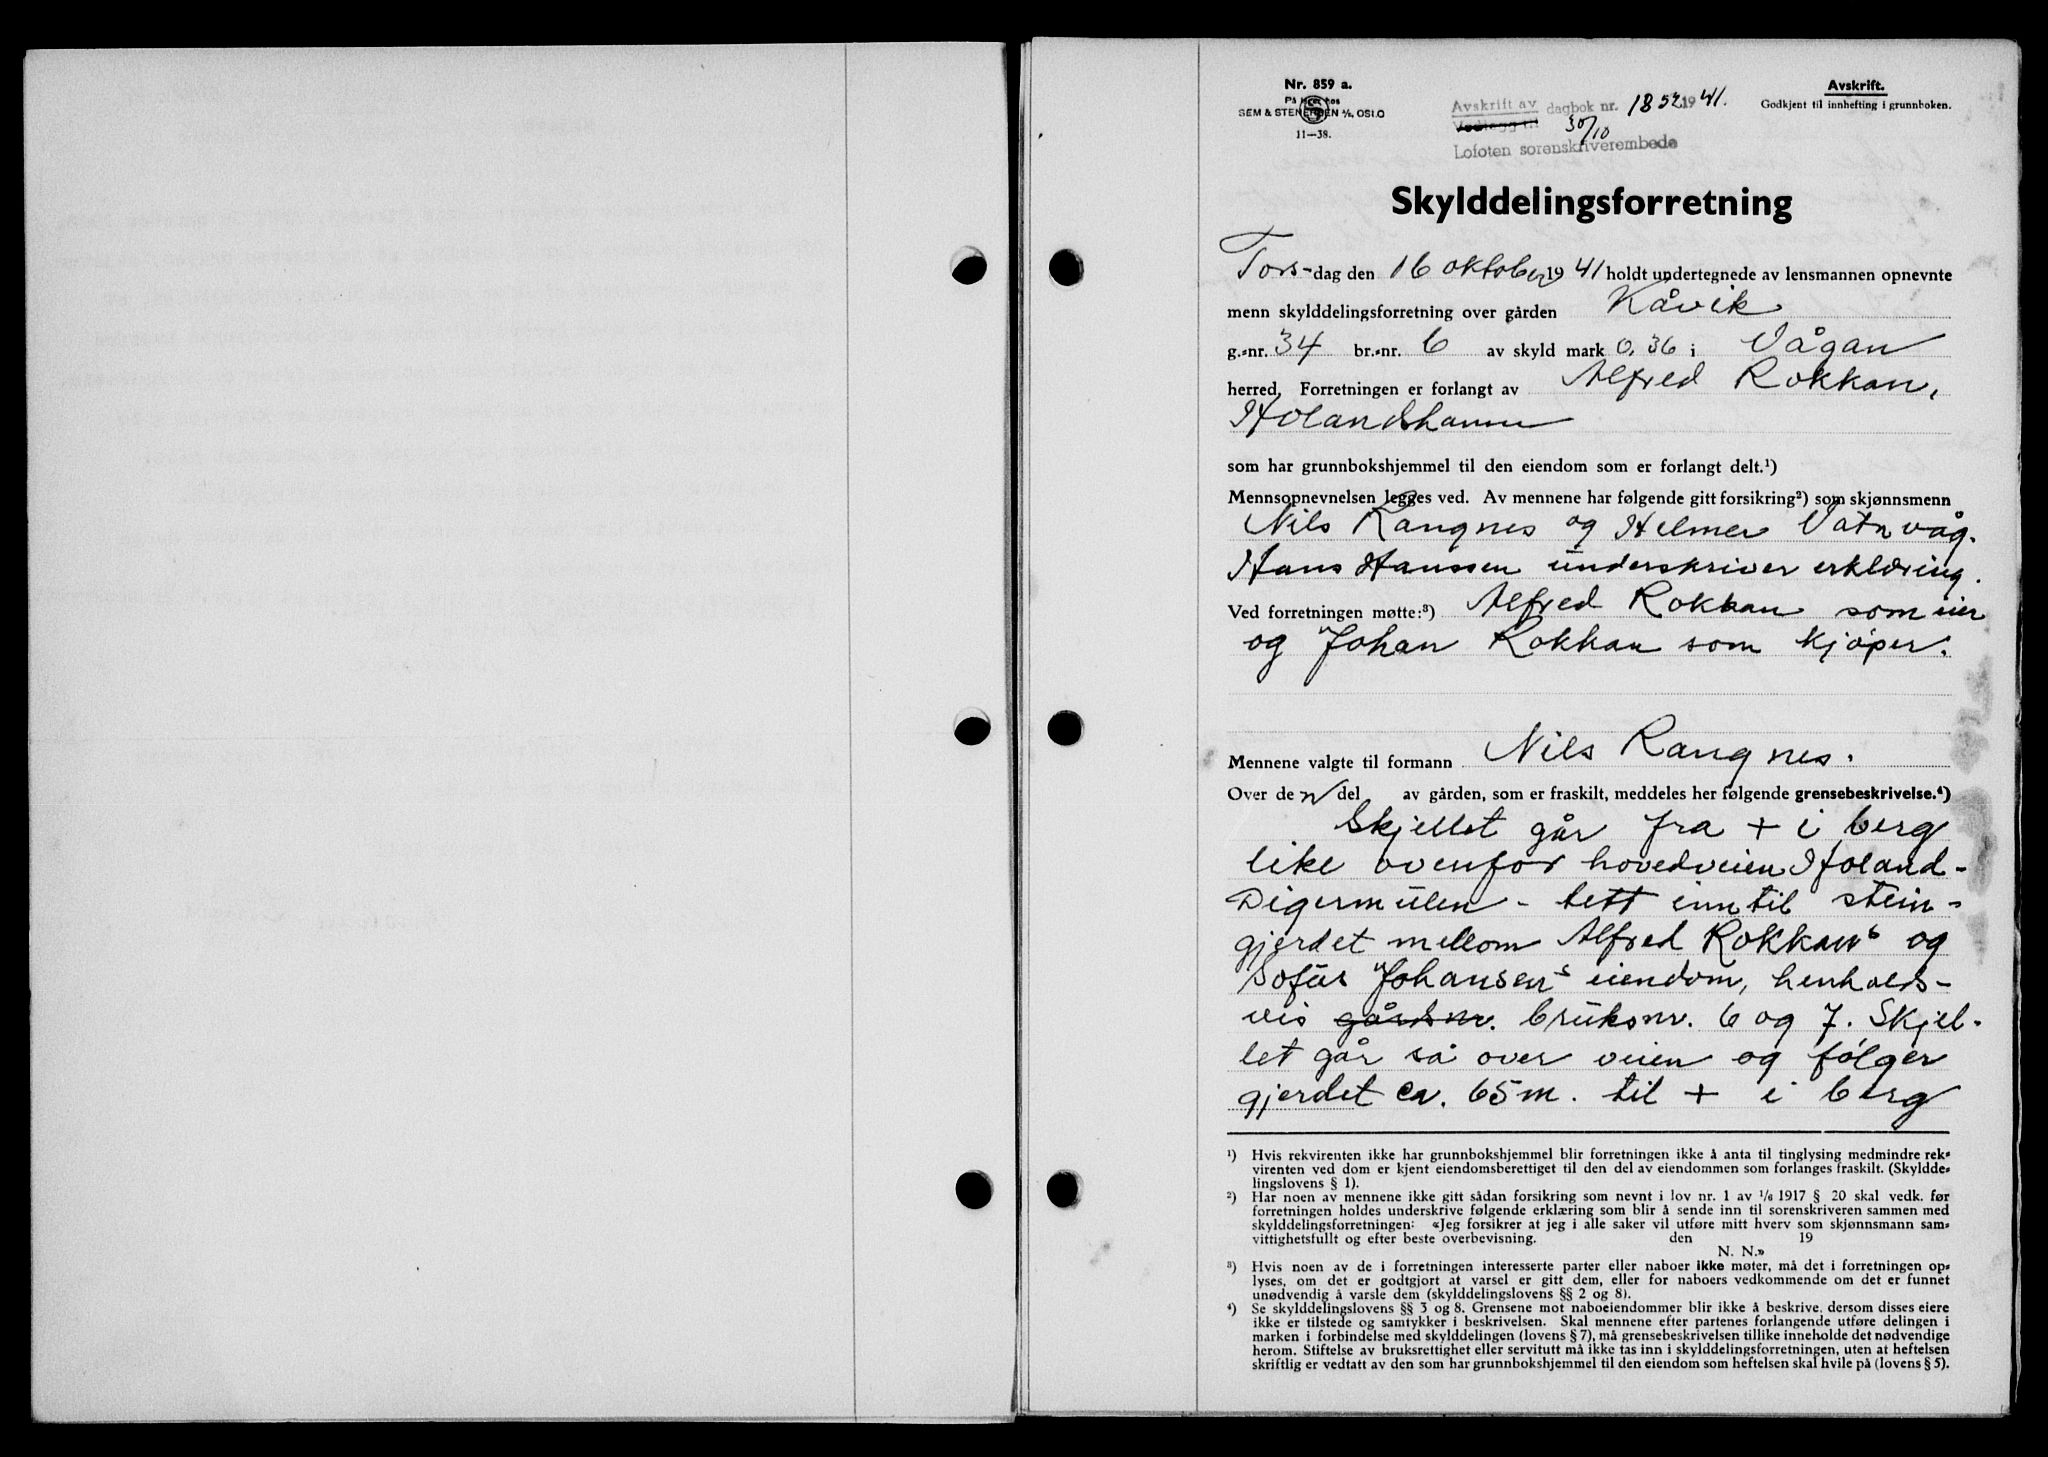 Nr. 859 a.
På lager hos
SEM & STENERSEN A/S, OSLO
11—38.
Avskrift av
Vedlegg til
dagbok nr. 1852 1941.
30/10
Lofoten sorenskriverembede
Avskrift.
Godkjent til innhefting i grunnboken.
Skylddelingsforretning
Tors-dag den 16 oktober 1941 holdt undertegnede av lensmannen opnevnte
menn skylddelingsforretning over gården Kåvik
g.-nr. 34 br.-nr. 6 av skyld mark 0,36 i Vågan
herred. Forretningen er forlangt av Alfred Rokkan,
Holandshamn
som har grunnbokshjemmel til den eiendom som er forlangt delt.¹)
Mennsopnevnelsen legges ved. Av mennene har følgende gitt forsikring²) som skjønnsmenn
Nils Rangnes og Helmer Vatnvåg.
Hans Hanssen underskriver erklæring.
Ved forretningen møtte:³) Alfred Rokkan som eier
og Johan Rokkan som kjøper.
Mennene valgte til formann Nils Rangnes.
Over den del av gården, som er fraskilt, meddeles her følgende grensebeskrivelse.⁴)
Skjellet går fra + i berg
like ovenfor hovedveien Holand-
Digermulen - tett inntil stein-
gjerdet mellom Alfred Rokkans og
Sofus Johansens eiendom, henholds-
vis gårdsnr. bruksnr. 6 og 7. Skjel-
let går så over veien og følger
gjerdet ca. 65 m. til + i berg
¹) Hvis rekvirenten ikke har grunnbokshjemmel blir forretningen ikke å anta til tinglysing medmindre rek-
virenten ved dom er kjent eiendomsberettiget til den del av eiendommen som forlanges fraskilt. (Skyldde-
lingslovens § 1).
²) Har noen av mennene ikke gitt sådan forsikring som nevnt i lov nr. 1 av 1/6 1917 § 20 skal vedk. før
forretningen holdes underskrive følgende erklæring som blir å sende inn til sorenskriveren sammen med
skylddelingsforretningen: «Jeg forsikrer at jeg i alle saker vil utføre mitt hverv som skjønnsmann sam-
vittighetsfullt og efter beste overbevisning. den 19
N. N.»
³) Hvis noen av de i forretningen interesserte parter eller naboer ikke møter, må det i forretningen op-
lyses, om det er godtgjort at varsel er gitt dem, eller for naboers vedkommende om det er funnet
unødvendig å varsle dem (skylddelingslovens §§ 2 og 8).
⁴) Se skylddelingslovens §§ 3 og 8. Grensene mot naboeiendommer blir ikke å beskrive, dersom disses eiere
ikke er tilstede og samtykker i beskrivelsen. Skal mennene efter partenes forlangende utføre delingen i
marken i forbindelse med skylddelingen (lovens § 7), må grensebeskrivelsen tillike inneholde det nødvendige
herom. Stiftelse av bruksrettighet eller servitutt må ikke tas inn i skylddelingsforretningen, uten at heftelsen
skriftlig er vedtatt av den som har grunnbokshjemmel til den eiendom som heftelsen skal hvile på (lovens § 5).